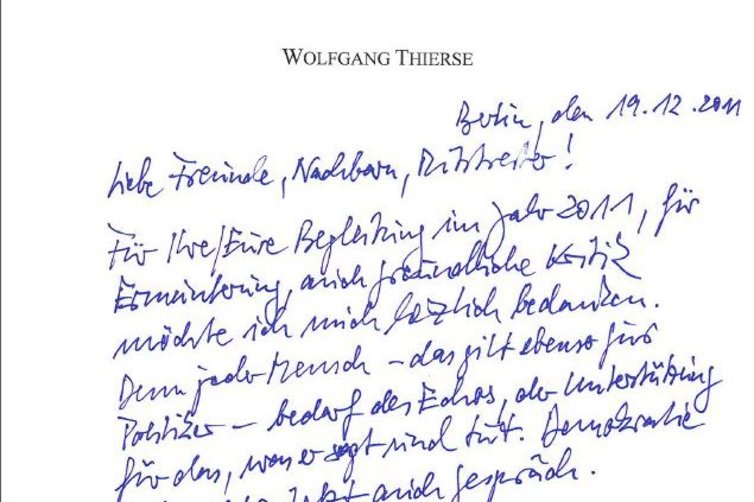 WOLFGANG THIERSE
Berlin, den 19.12.2011
Liebe Freunde, Nachbarn, Mitstreiter!
Für Ihre/Eure Begleitung im Jahr 2011, für
Ermunterung, auch freundliche Kritik
möchte ich mich herzlich bedanken.
Denn jeder Mensch – das gilt ebenso für
Politiker – bedarf des Echos, der Unterstützung
für das, was er sagt und tut. Demokratie
lebt auch Gespräch.